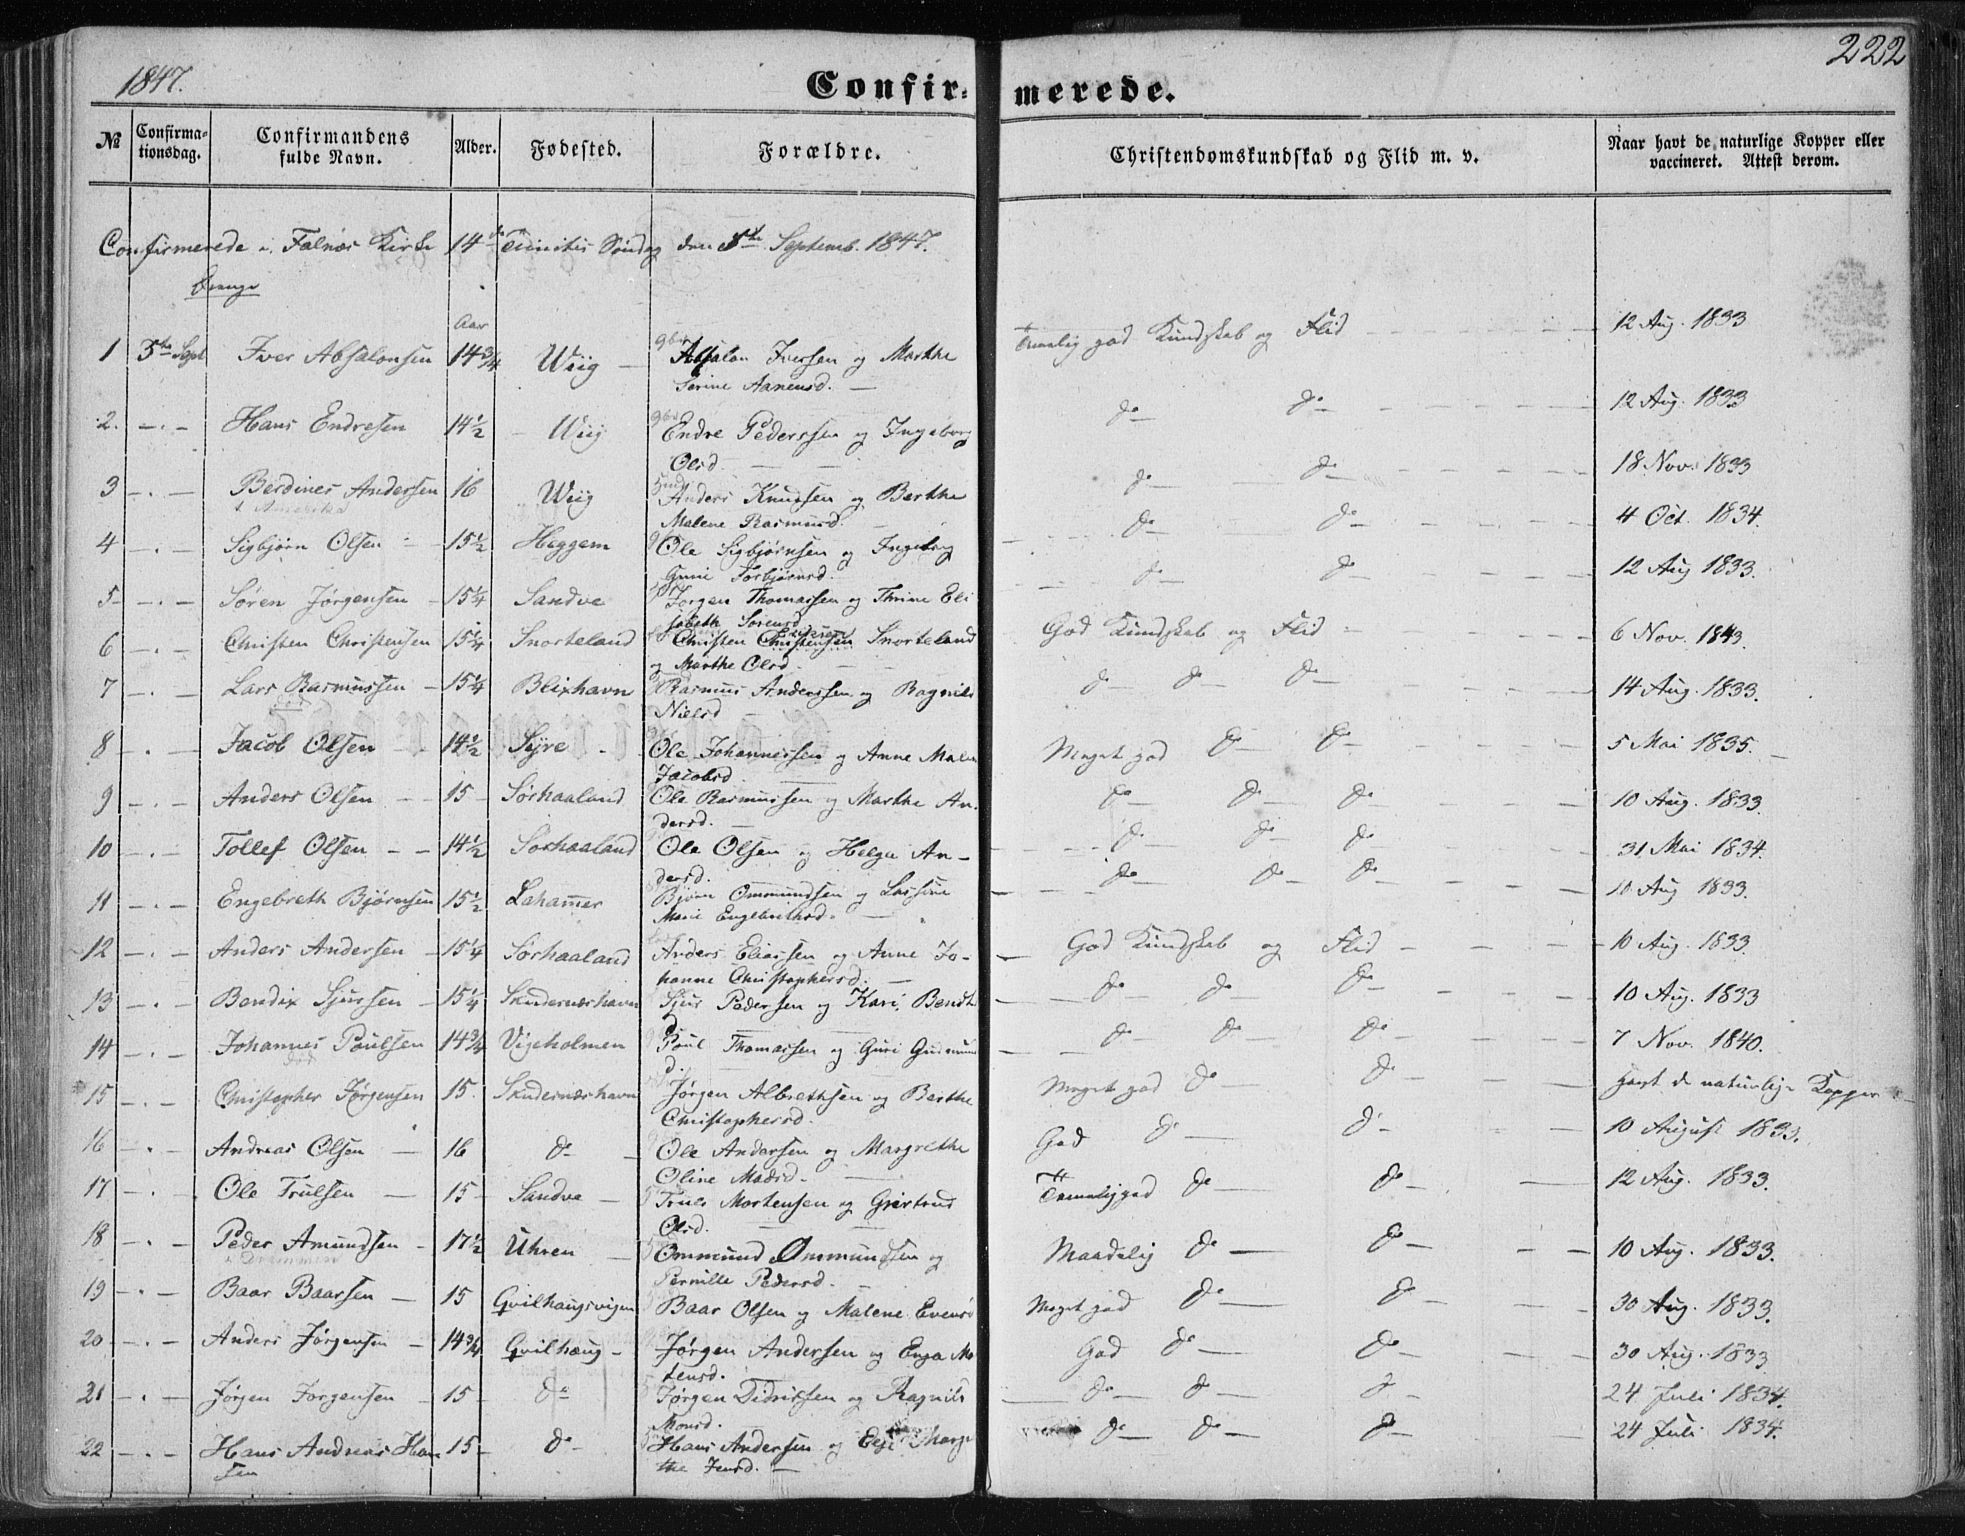 1847.
222
Confir= merede.
№ Confirma=tionsdag. Confirmandens fulde Navn. Alder. Fødested. Forældre. Christendomskundskab og Flid m. v. Naar havt de naturlige Kopper eller vaccineret. Attest derom.
Confirmerede i Falnæs Kirke 14de Trinitis Søndag den 5te Septemb. 1847.
Drenge
Aar
1 5te Sept Iver Absalonsen 14 3/4 Wiig Absalon Iversen og Marthe Temmelig god Kundskab og Flid 12 Aug. 1833
Serine Aanensd.
2. — . — Hans Endresen 14 1/2 Wiig Endre Pederssen og Ingeborg do do 12 Aug. 1833
Olsd.
3 — . — Berdines Andersen 16 Wiig Anders Knudsen og Berthe do do 18 Nov. 1833
Malene Rasmusd.
4 — . — Sigbjørn Olsen 15 1/2 Heggem Ole Sigbjørnsen og Ingeborg do do 4 Oct. 1834.
Gurie Torbjørnsd.
5 — . — Søren Jørgensen 15 1/4 Sandve Jørgen Thomassen og Thrine Eli do do 12 Aug 1833.
sabeth Sørensd.
6 — . — Christen Christensen 15 1/4 Snorteland Christen Christensen Snorteland God Kundskab og Flid 6 Nov. 1843.
og Marthe Olsd.
7 — . — Lars Rasmussen 15 1/4 Blixhavn Rasmus Anderssen og Ragnild do do do 14 Aug. 1833.
død
Nielsd
8 — . — Jacob Olsen 14 1/2 Syre Ole Johannessen og Anne Malen Meget god do do 5 Mai 1835.
Jacobsd.
9 — . — Anders Olsen 15 Sørhaaland Ole Rasmussen og Marthe An= do do do 10 Aug. 1833.
dersd.
10 — . — Tollef Olsen 14 1/2 Sørhaaland Ole Olsen og Helga An= do do do 31 Mai 1834.
dersd.
11 — . — Engebreth Bjørnsen 15 1/2 Lahammer Bjørn Ommundsen og Lassine do do do 10 Aug 1833.
Marie Engebrethsd.
12 — . — Anders Andersen 15 1/4 Sørhaaland Anders Eliassen og Anne Jo= God Kundskab og Flid 10 Aug. 1833.
hanne Christophersd.
13 — . — Bendix Sjursen 15 1/4 Skudesnæshavn Sjur Pedersen og Kari Bendt do do do 10 Aug. 1833
14 — . — Johannes Poulsen 14 3/4 Vigeholmen Poul Thomassen og Guri Gudmun do do do 7 Nov. 1840.
død
d.
15 — . — Christopher Jørgensen 15 Skudesnæshavn Jørgen Albrethsen og Berthe Meget god do do havt de naturlige Kopper
Christophersd.
16 — . — Andreas Olsen 16 do Ole Andersen og Margrethe God do do 10 August 1833.
Oline Madsd.
17 — . — Ole Trulsen 15 Sandve Truls Mortensen og Giertrud Temmelig god do do 12 Aug. 1833.
Olsd.
18 — . — Peder Amundsen 17 1/2 Uhren Ommund Ommundsen og Maadelig do do 10 Aug. 1833.
Pernille Pedersd.
19 — . — Baar Baarsen 15 Qvilhaugsvigen Baar Olsen og Malene Evensd Meget god do do 30 Aug. 1833.
20 — . — Anders Jørgensen 14 3/4 Qvilhaug Jørgen Andersen og Enga Mo God do do 30 Aug. 1833
tensd.
21 — . — Jørgen Jørgensen 15 do Jørgen Didrissen og Ragnild do do do 24 Juli 1834.
Monsd.
22 — . — Hans Andreas Han 15 do Hans Andersen og Marg do do do 24 Juli 1834.
sen
the Jensd.